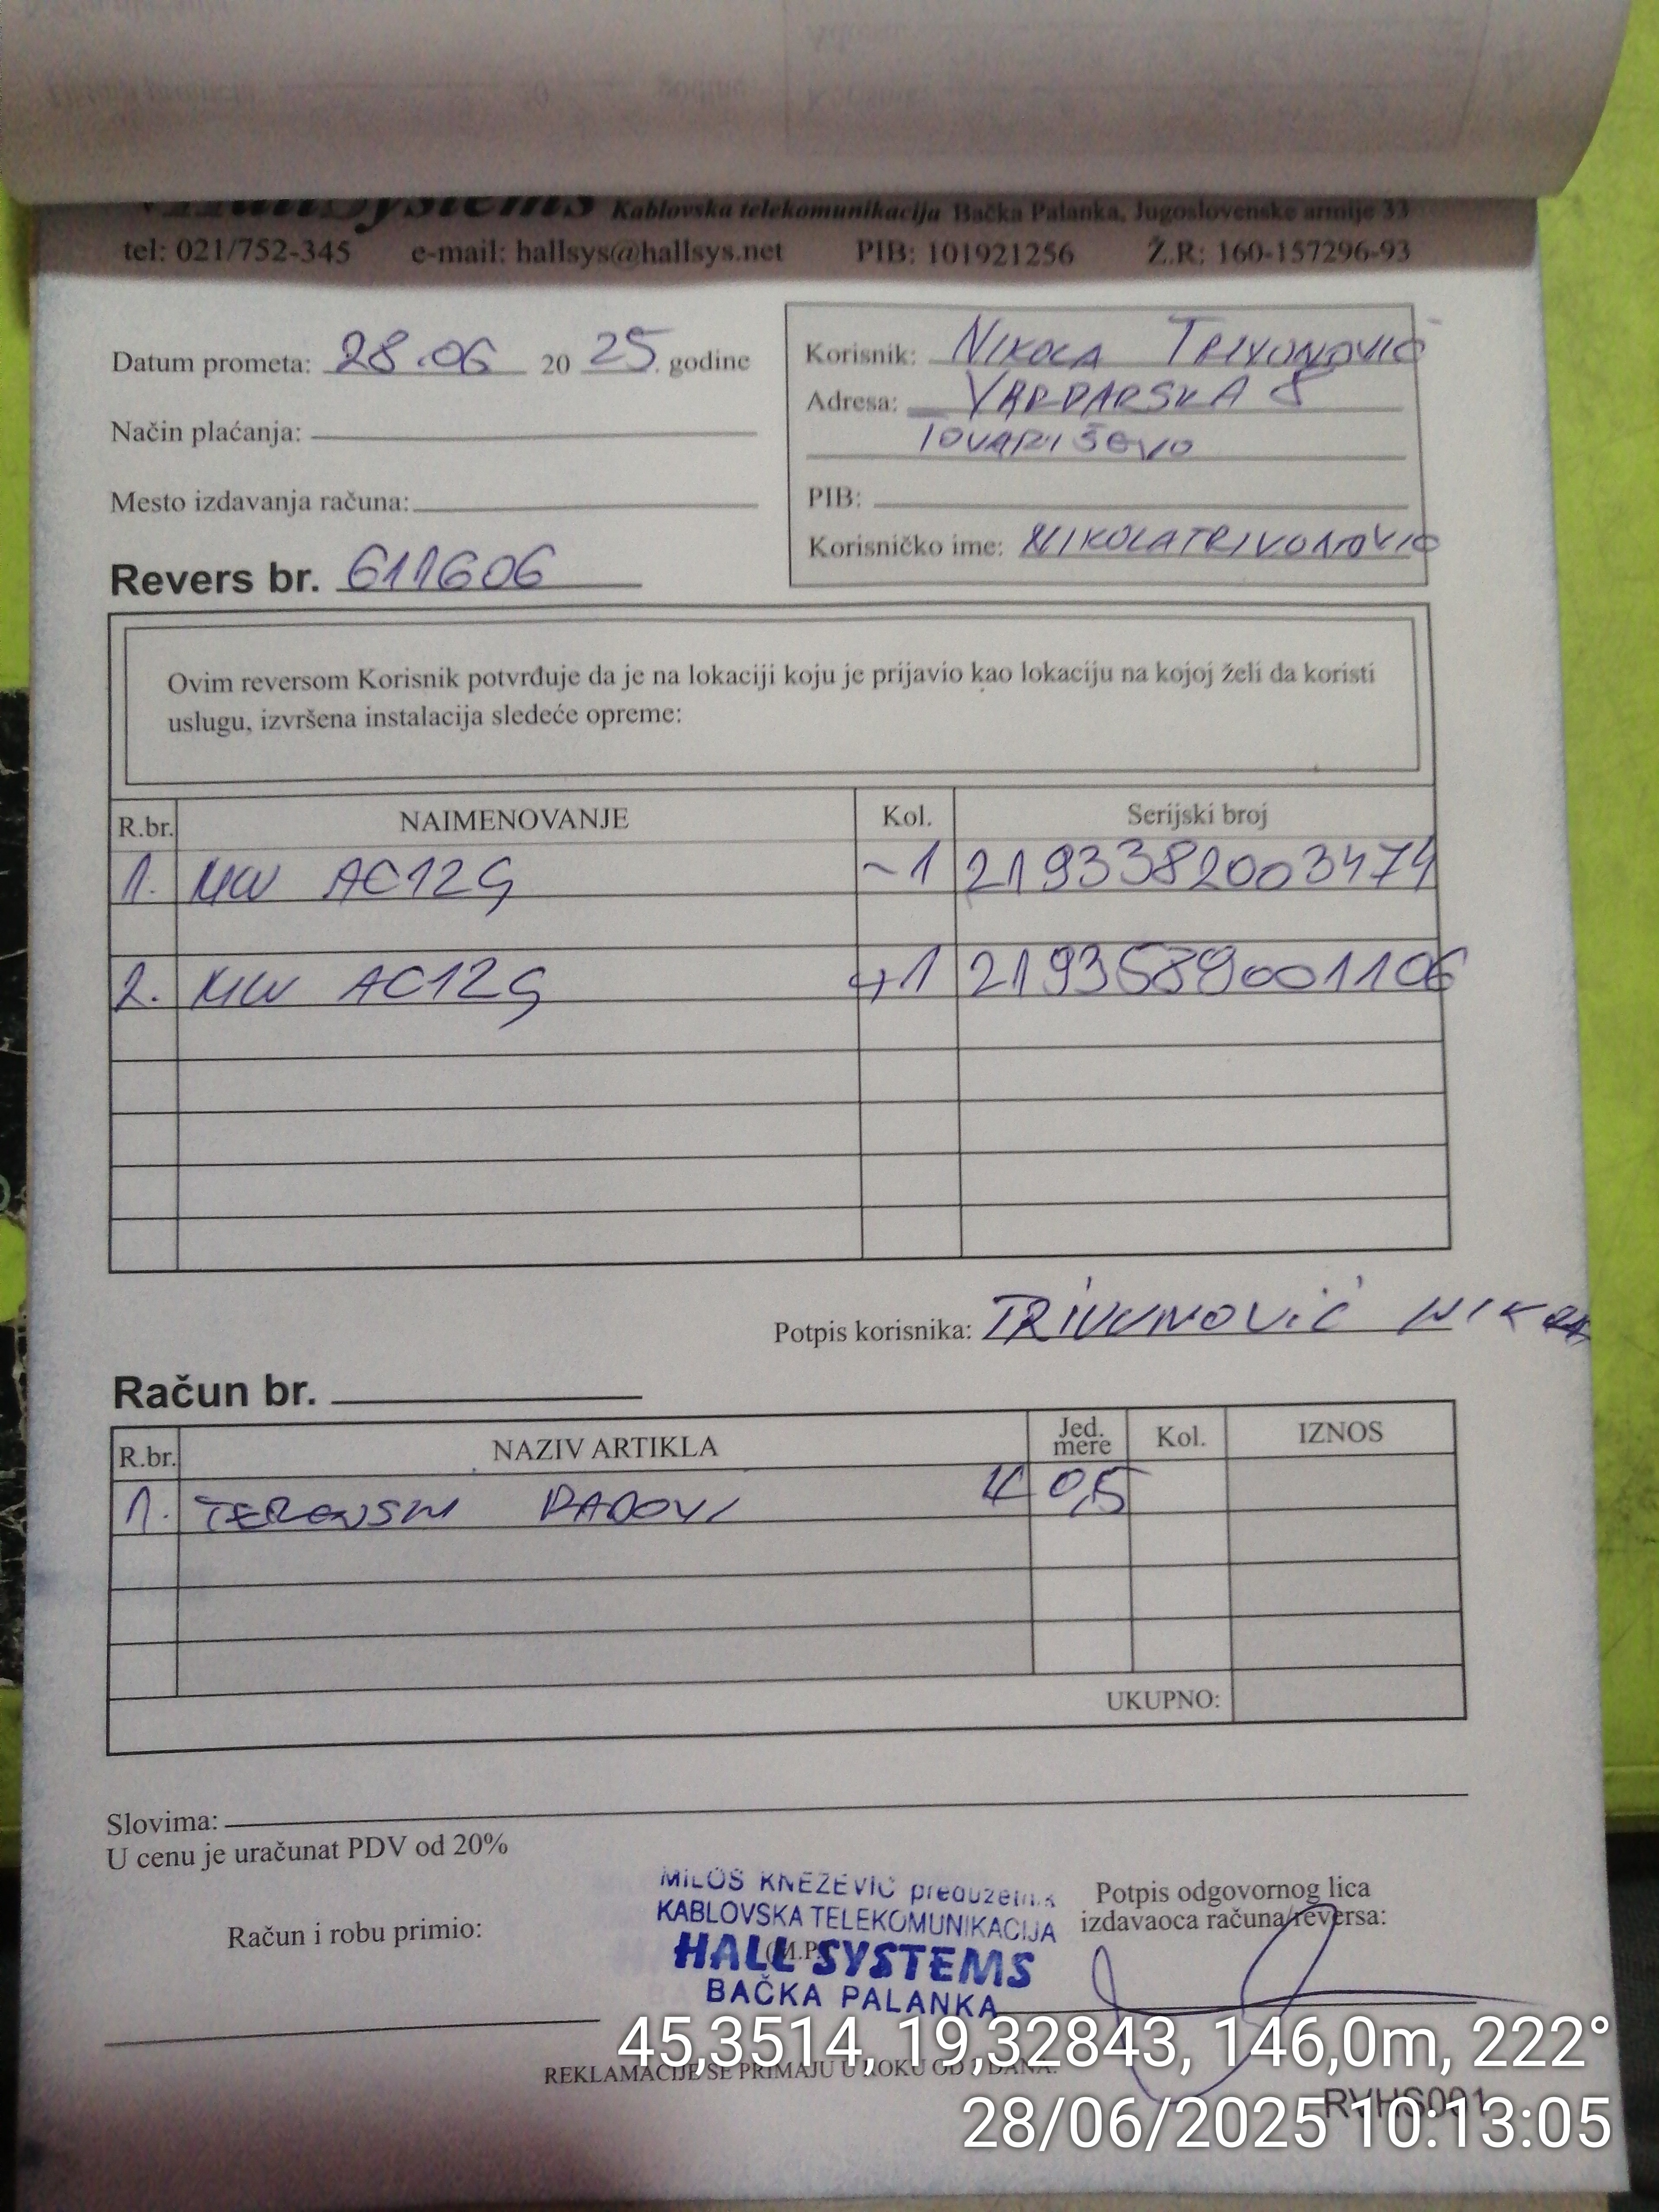 HallSystems Kablovska telekomunikacija Bačka Palanka, Jugoslovenske armije 33
tel: 021/752-345 e-mail: hallsys@hallsys.net PIB: 101921256 Ž.R: 160-157296-93
Datum prometa: 28.06 2025. godine
Način plaćanja:
Mesto izdavanja računa:
Revers br. 611606
Korisnik: NIKOLA TRIVUNOVIĆ
Adresa: VARDARSKA 8
TOVARIŠEVO
PIB:
Korisničko ime: NIKOLATRIVUNOVIC
Ovim reversom Korisnik potvrđuje da je na lokaciji koju je prijavio kao lokaciju na kojoj želi da koristi
uslugu, izvršena instalacija sledeće opreme:
R.br. NAIMENOVANJE Kol. Serijski broj
1. MW AC12G -1 2193382003474
2. MW AC12G +1 2193589001106
Potpis korisnika: TRIVUNOVIĆ NIKOLA
Račun br.
R.br. NAZIV ARTIKLA Jed. mere Kol. IZNOS
1. TERENSKI RADOVI 0,5
UKUPNO:
Slovima:
U cenu je uračunat PDV od 20%
Račun i robu primio:
MILOŠ KNEŽEVIĆ preduzetnik
KABLOVSKA TELEKOMUNIKACIJA
(M.P.)
HALL SYSTEMS
BAČKA PALANKA
Potpis odgovornog lica
izdavaoca računa/reversa:
REKLAMACIJE SE PRIMAJU U ROKU OD DANA.
RVHS001
45,3514, 19,32843, 146,0m, 222°
28/06/2025 10:13:05